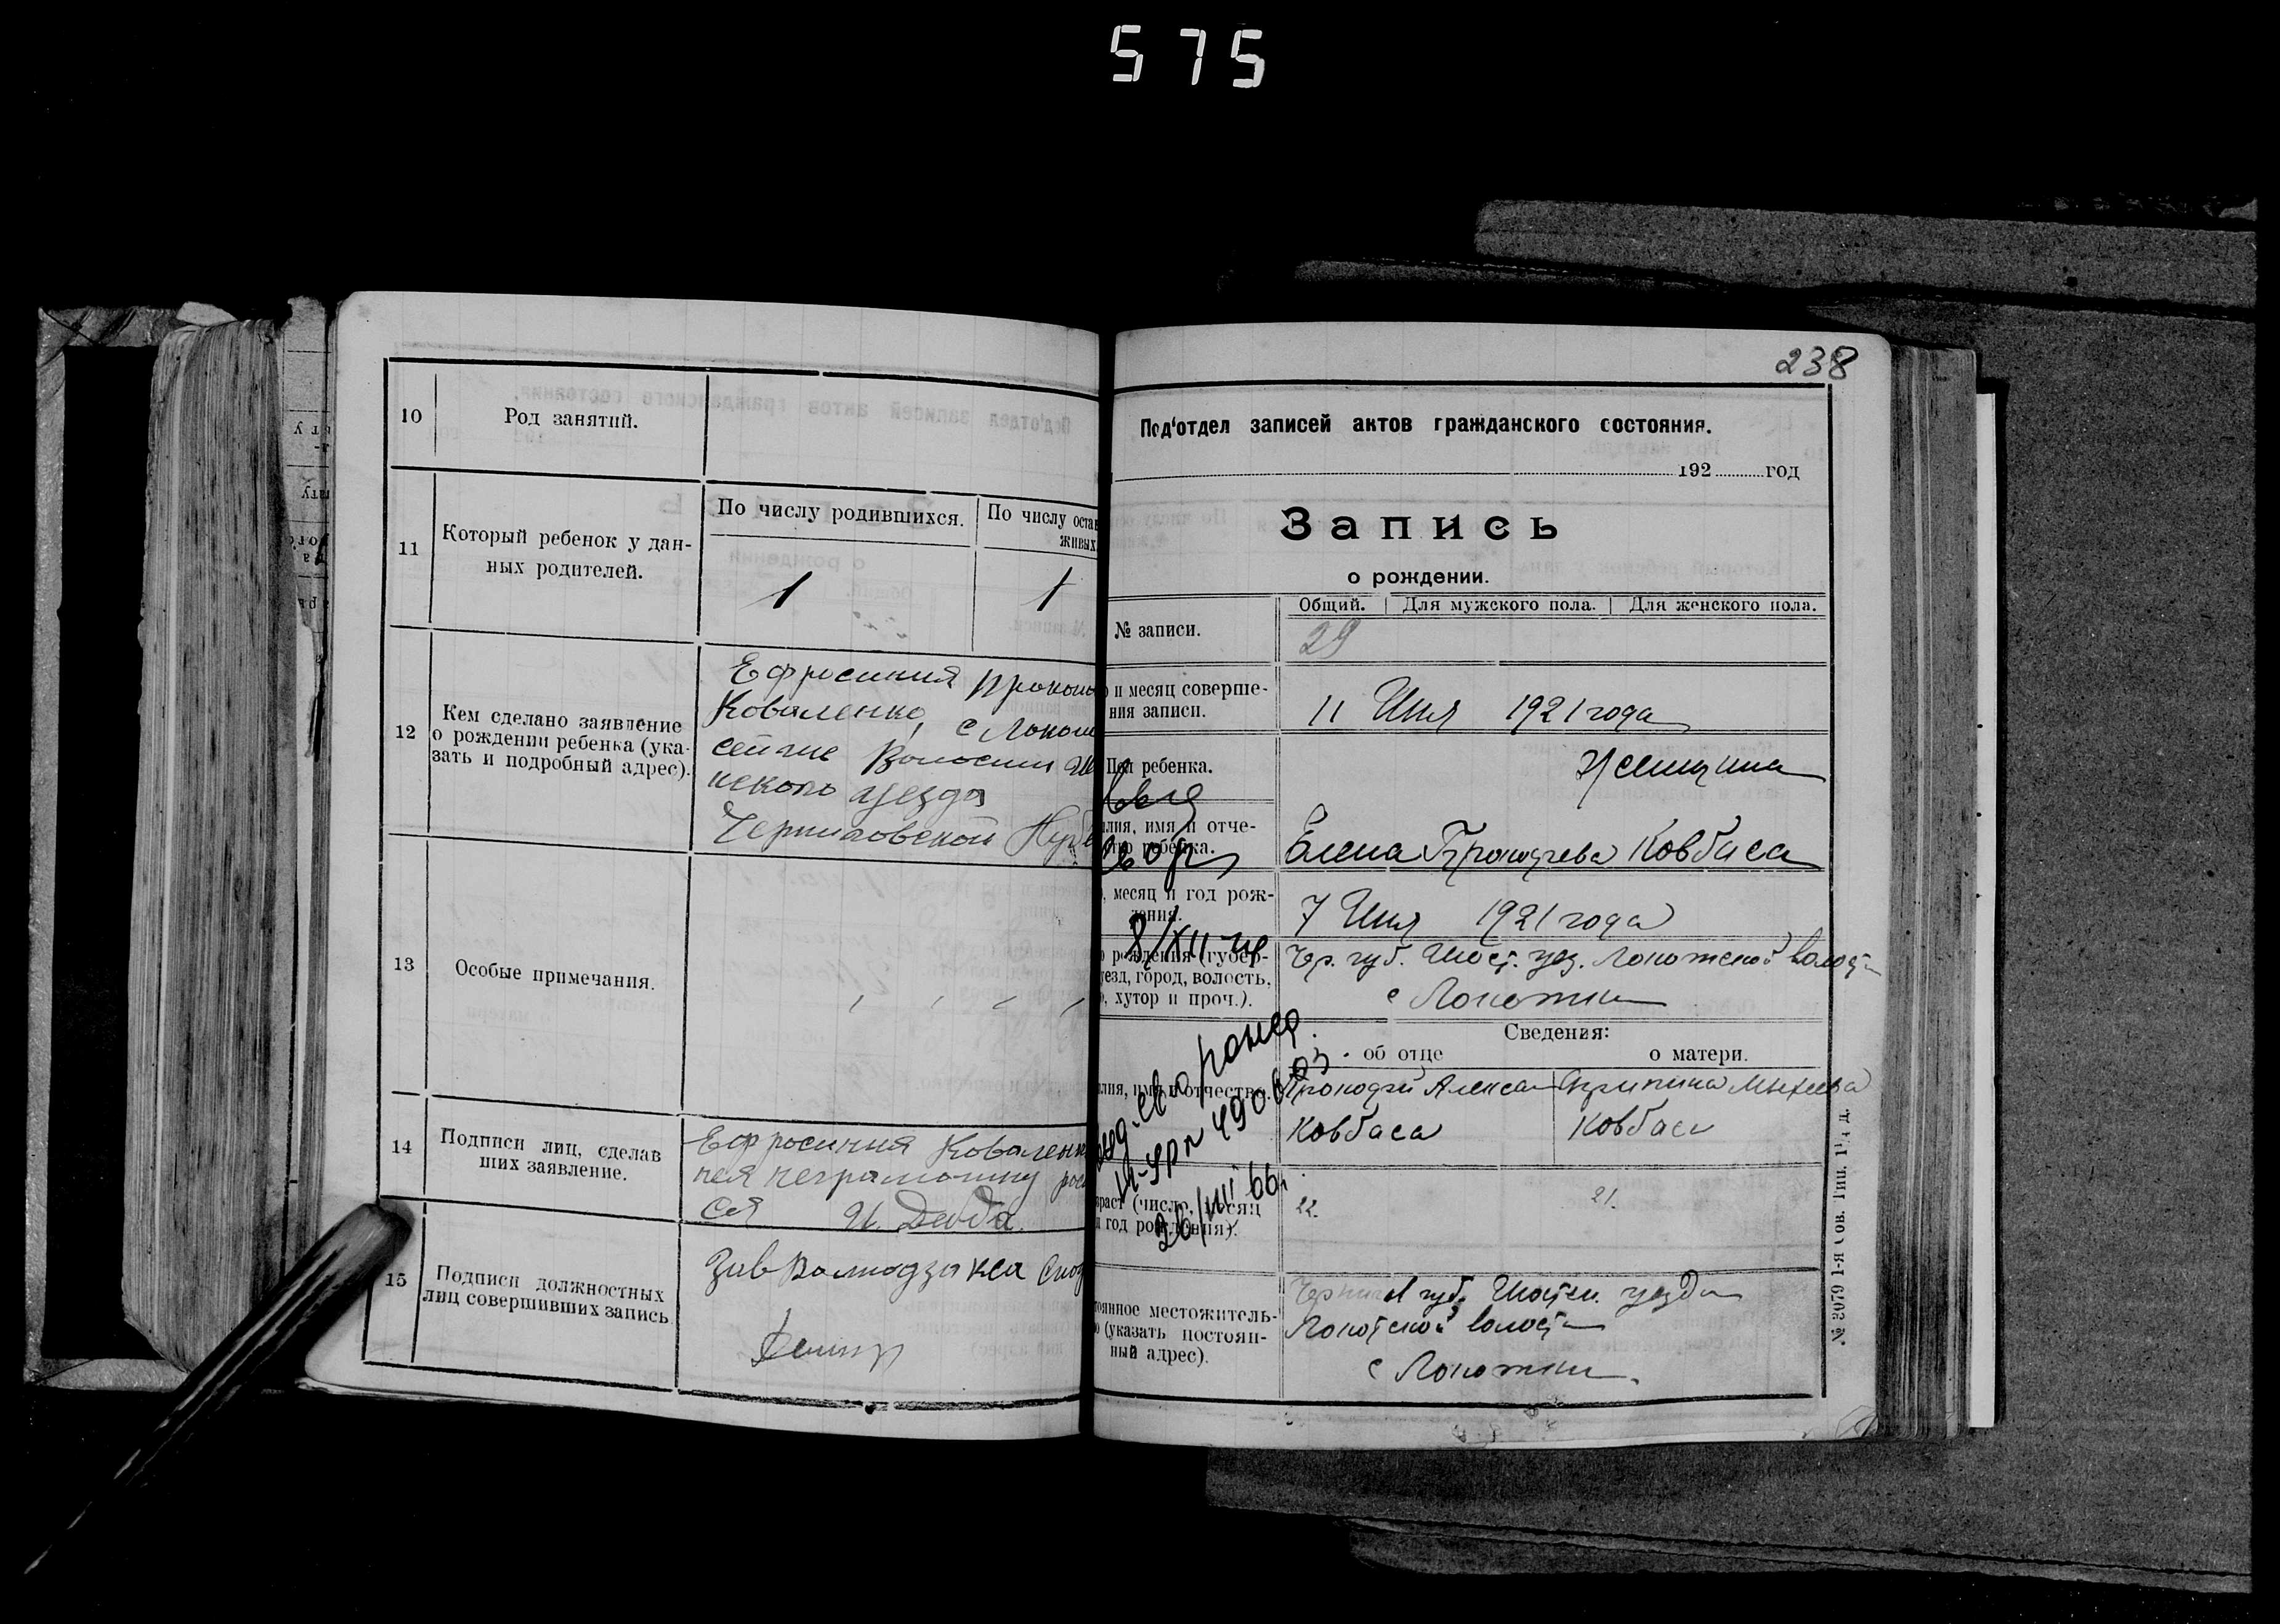 575
10
Род занятий.
11
Который ребенок у дан-
ных родителей.
По числу родившихся.
По числу остав
живых
1
1
12
Кем сделано заявление
о рождении ребенка (ука-
зать и подробный адрес).
Ефросиния Прокопо
Коваленко, с Локот
Волости
уезда
Черниговской Губе
13
Особые примечания.
14
Подписи лиц, сделав
ших заявление.
Ефросиния Коваленк
неграмотну
ся И. Дейда
15
Подписи должностных
лиц совершивших запись
Зав
238
Под'отдел записей актов гражданского состояния.
192 год
Запись
о рождении.
Общий. Для мужского пола. Для женского пола.
№ записи.
29
о и месяц соверше-
ния записи.
11 Июля 1921 года
Пол ребенка.
Женщина
илия, имя и отче-
ство ребенка.
Елена Ковбаса
, месяц и год рож-
дения.
7 Июля 1921 года
8/XII-
о рождения (губер-
уезд, город, волость,
о, хутор и проч.).
Чер. губ. Шост. уез. Локотской волости
с Локотки
Сведения:
об отце
о матери.
илия, имя и отчество.
Прокофий Алексан
Ковбаса
Агрипина Михеева
Ковбаса
зраст (число, месяц
и год рождения).
22.
21.
26/III 66г.
тоянное местожитель-
о (указать постоян-
ный адрес).
Чернигов губ. Шостен. уезда
Локотской волости
с Локотки
№ 3079 1-я Сов. Тип.